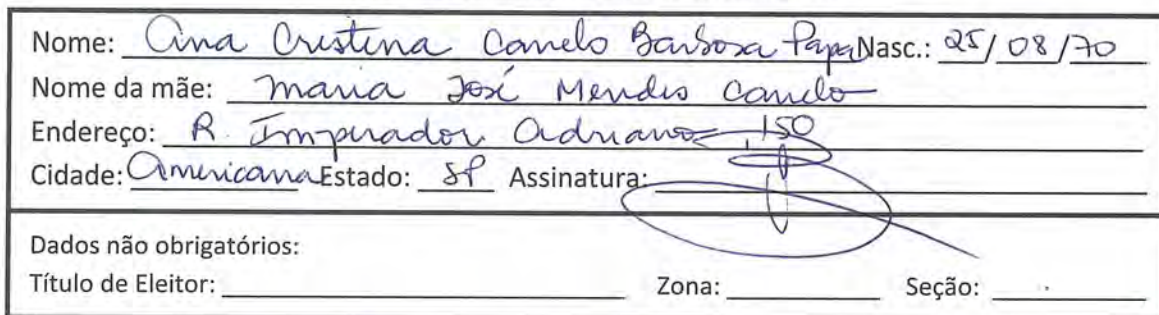 Nome: Ana Cristina Canelo Barbosa Papa Nasc.: 25/08/70
Nome da mãe: Maria José Mendes Canelo
Endereço: R. Imperador Adriano, 150
Cidade: Americana Estado: SP Assinatura:
Dados não obrigatórios:
Título de Eleitor: Zona: Seção: